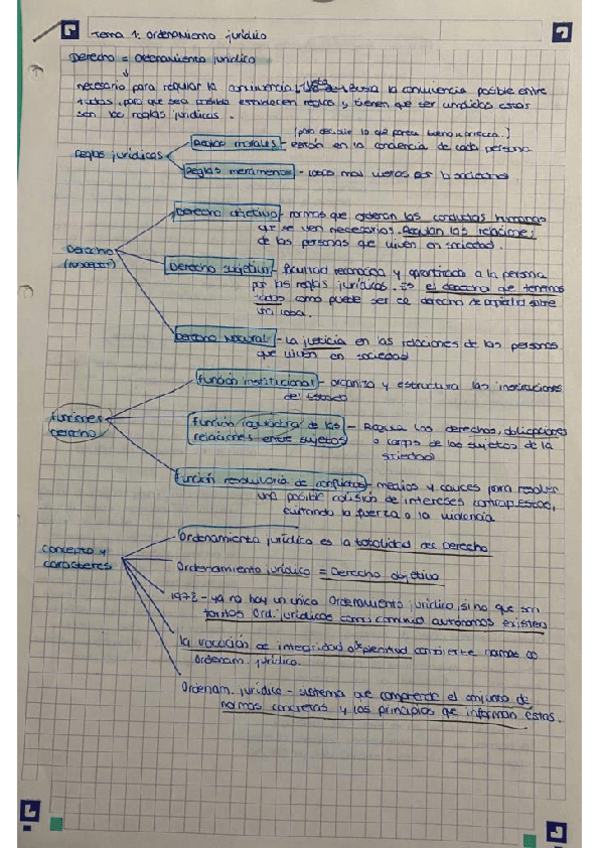 Tema 1: Ordenamiento jurídico
Derecho = Ordenamiento jurídico
necesario para regular la convivencia, la convivencia posible entre
todos, para que sea posible establecen reglas y tienen que ser cumplidas estas
son las reglas jurídicas.
(para decidir lo que parece bueno o correcto.)
Reglas jurídicas
Reglas morales - están en la conciencia de cada persona
Reglas meramente - por la sociedad
Derecho objetivo - normas que ordenan las conductas humanas
que se ven necesarias. Regulan las relaciones
de las personas que viven en sociedad.
Derecho
Derecho subjetivo - facultad reconocida y a la persona
por las reglas jurídicas. Es el derecho que tenemos
todos como puede ser el derecho de sobre
una cosa.
Derecho natural - La justicia en las relaciones de las personas
que viven en sociedad
Función institucional - organiza y estructura las instituciones
del Estado
Funciones
derecho
Función reguladora de las
relaciones entre sujetos - Regula los derechos, obligaciones
o cargas de los sujetos de la
sociedad
Función resolutoria de conflictos - medios y cauces para resolver
una posible colisión de intereses contrapuestos,
evitando la fuerza o la violencia
Concepto y
caracteres
Ordenamiento jurídico es la totalidad del Derecho
Ordenamiento jurídico = Derecho objetivo
1978 - ya no hay un único Ordenamiento jurídico, sino que son
tantos Ord. jurídicos como autónomas existen
la vocación de integridad o plenitud convierte normas en
ordenam. jurídico.
Ordenam. jurídico - sistema que comprende el conjunto de
normas concretas y los principios que informan estas.